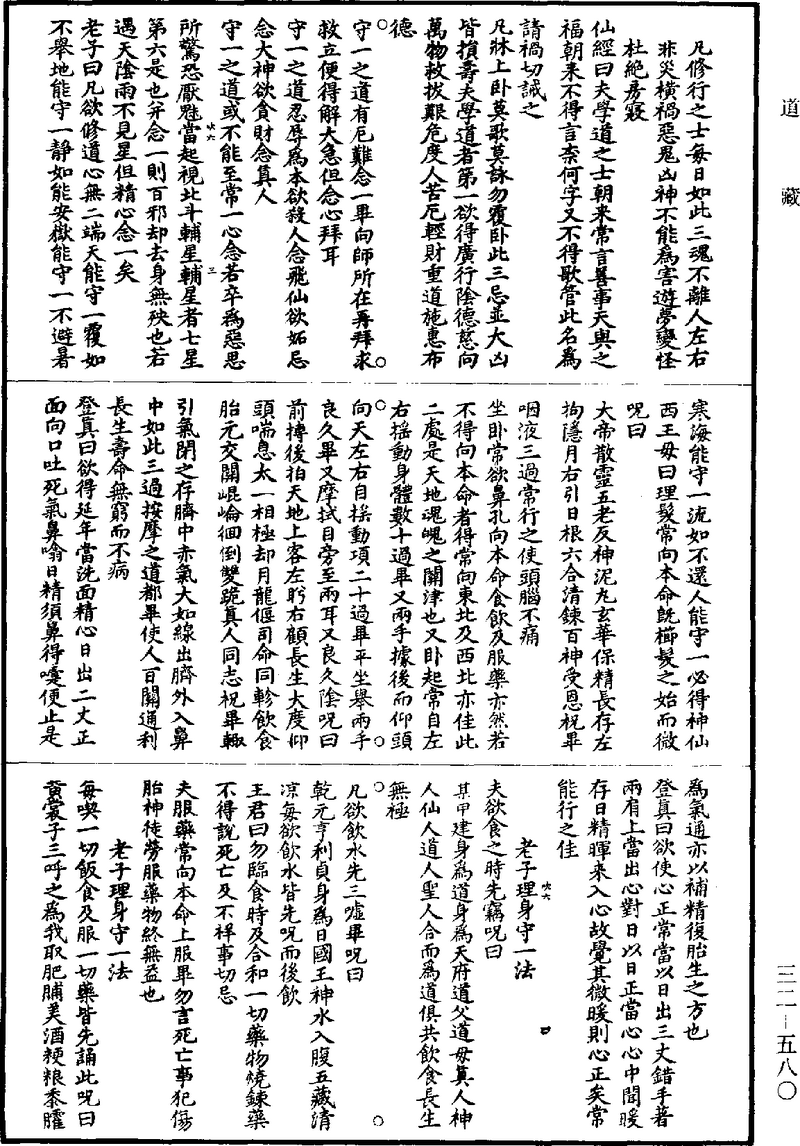 道藏
凡修行之士每日如此三魂不離人左右
非災橫禍惡鬼凶神不能爲害遊夢變怪
杜絕房寢
仙經曰夫學道之士朝来常言善事天與之
福朝来不得言柰何字又不得歌管此名爲
請禍切誡之
凡牀上卧莫歌莫詠勿覆卧此三忌並大凶
皆損壽夫學道者第一欲得廣行陰德慈向
萬物救拔艱危度人苦厄輕財重道施惠布
德
守一之道有厄難念一畢向師所在再拜求
救立便得解大急但念心拜耳
守一之道忍辱爲本欲殺人念飛仙欲妬忌
念大神欲貪財念真人
守一之道或不能至常一心念若卒爲惡思
所驚恐厭魅當起視北斗輔星輔星者七星
第六是也并念一則百邪却去身無殃也若
遇天陰雨不見星但精心念一矣
老子曰凡欲修道心無二端天能守一覆如
不舉地能守一靜如能安嶽能守一不避暑
寒海能守一流如不還人能守一必得神仙
西王母曰理髮常向本命旣櫛髮之始而微
呪曰
大帝散靈五老反神泥丸玄華保精長存左
拘隱月右引日根六合清鍊百神受恩祝畢
咽液三過常行之使頭腦不痛
坐卧常欲鼻孔向本命食飲及服藥亦然若
不得向本命者得常向東北及西北亦佳此
二處是天地魂魄之關津也又卧起常自左
右搖動身體數十過畢又兩手據後而仰頭
向天左右自搖動項二十過畢平坐舉兩手
良久畢又摩拭目旁至兩耳又良久陰呪曰
前摶後拍天地上客左眄右顧長生大度仰
頭喘息太一相極却月龍偃司命同軫飲食
胎元交關崐崘徊倒雙跪真人同志祝畢輙
引氣閉之存臍中赤氣大如線出臍外入鼻
中如此三過按摩之道都畢使人百關通利
長生壽命無窮而不病
登真曰欲得延年當洗面精心日出二丈正
面向口吐死氣鼻噏日精須鼻得嚏便止是
爲氣通亦以補精復胎生之方也
登真曰欲使心正常當以日出三丈錯手著
兩肩上當出心對日以日正當心心中間暖
存日精暉来入心故覺其微暖則心正矣常
能行之佳
老子理身守一法
夫欲食之時先竊呪曰
某甲建身爲道身爲天府道父道母真人神
人仙人道人聖人合而爲道俱共飲食長生
無極
凡欲飲水先三噓畢呪曰
乾元亨利貞身爲日國王神水入腹五藏清
凉每欲飲水皆先呪而後飲
王君曰勿臨食時及合和一切藥物燒鍊藥
不得說死亡及不祥事切忌
夫服藥常向本命上服畢勿言死亡事犯傷
胎神徒勞服藥物終無益也
老子理身守一法
每喫一切飯食及服一切藥皆先誦此呪曰
黄裳子三呼之爲我取肥脯美酒粳粮黍臛
三二－五八〇